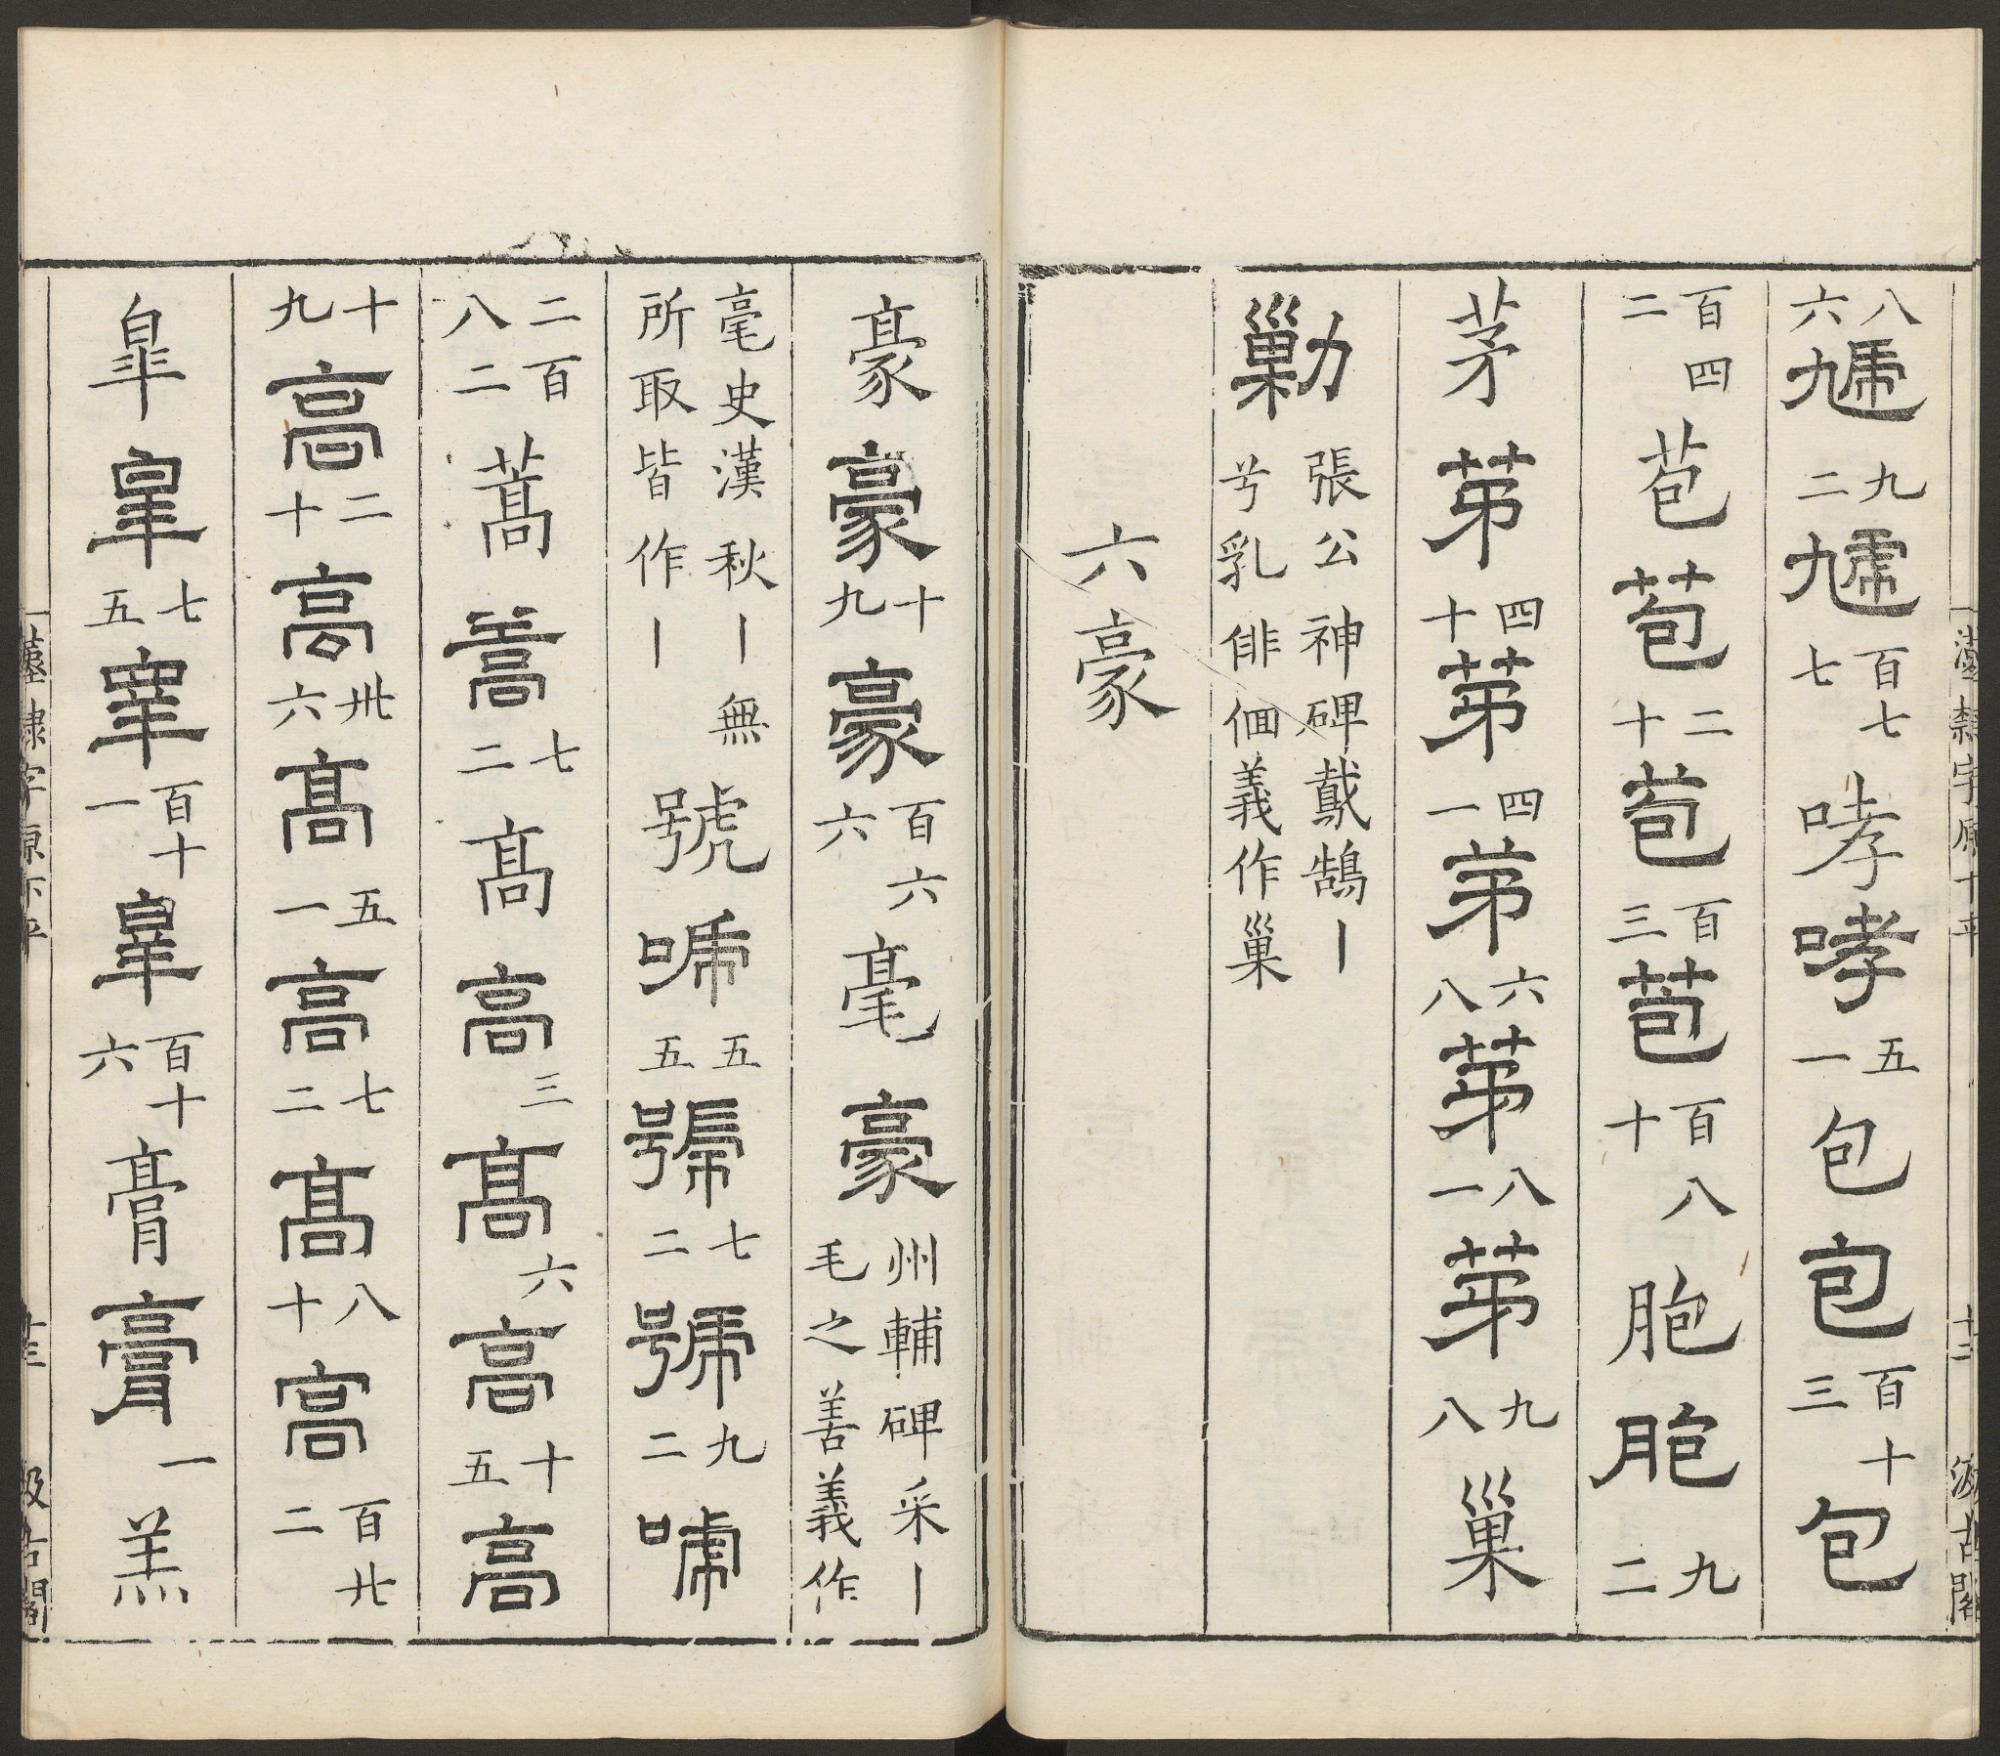 八六𧇽九二𧇽百七七哮哮五一包包百十三包
百四二苞苞二十苞百三苞百八十胞胞九二
茅茅四十茅四一茅六八茅八一茅九八巢
勦張公神碑戴鵠丨兮乳俳佪義作巢
六豪
豪豪十九豪百六六毫豪州輔碑采丨毛之善義作
毫史漢秋丨無所取皆作丨號唬五五號七二號九二唬
二百八二蒿蒿七二高高三高六高十五高
十九高二十高卅六高五一高七二高八十高百廿二
皐皐七五皐百十一皐百十六膏膏一羔
漢隸字原下平
十三
汲古閣